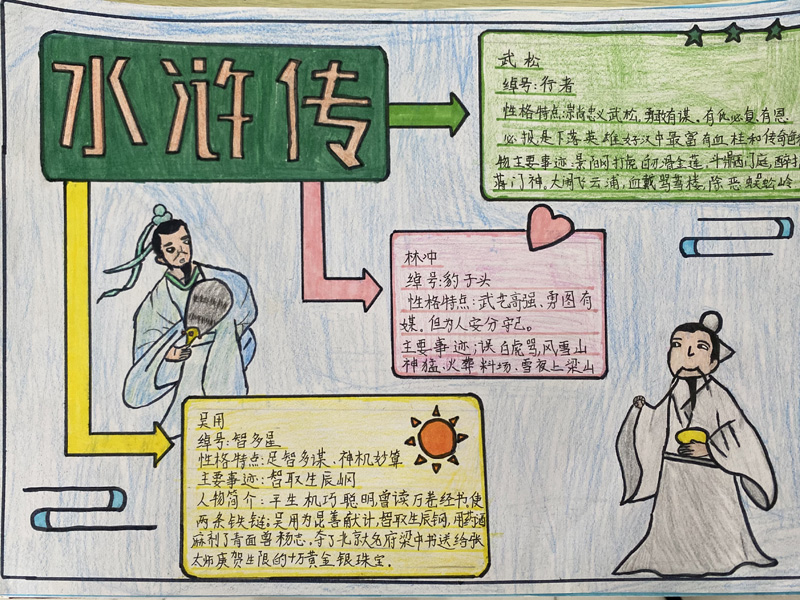 水浒传
武松
绰号:行者
性格特点:崇尚忠义武松,勇敢有谋。有仇必复有恩
必报是下落英雄好汉中最富有血
物主要事迹:景阳
蒋门神。大闹飞云浦,血
林冲
绰号:豹子头
性格特点:武艺高强、勇图有
媒。但为人安分守己。
主要事迹:误白虎骂,风雪山
神猛、火葬料场、雪夜上梁山
吴用
绰号:智多星
性格特点:足智多谋、神机妙算
主要事迹:智取生辰纲
人物简介:平生机巧聪明,曾读万卷经书,使
两条铁链;吴用为晁善献计,智取生辰纲,用药酒
麻倒了青面兽杨志,夺了北京大名府梁中书送给张
太师庚贺生限的十万黄金银珠宝.